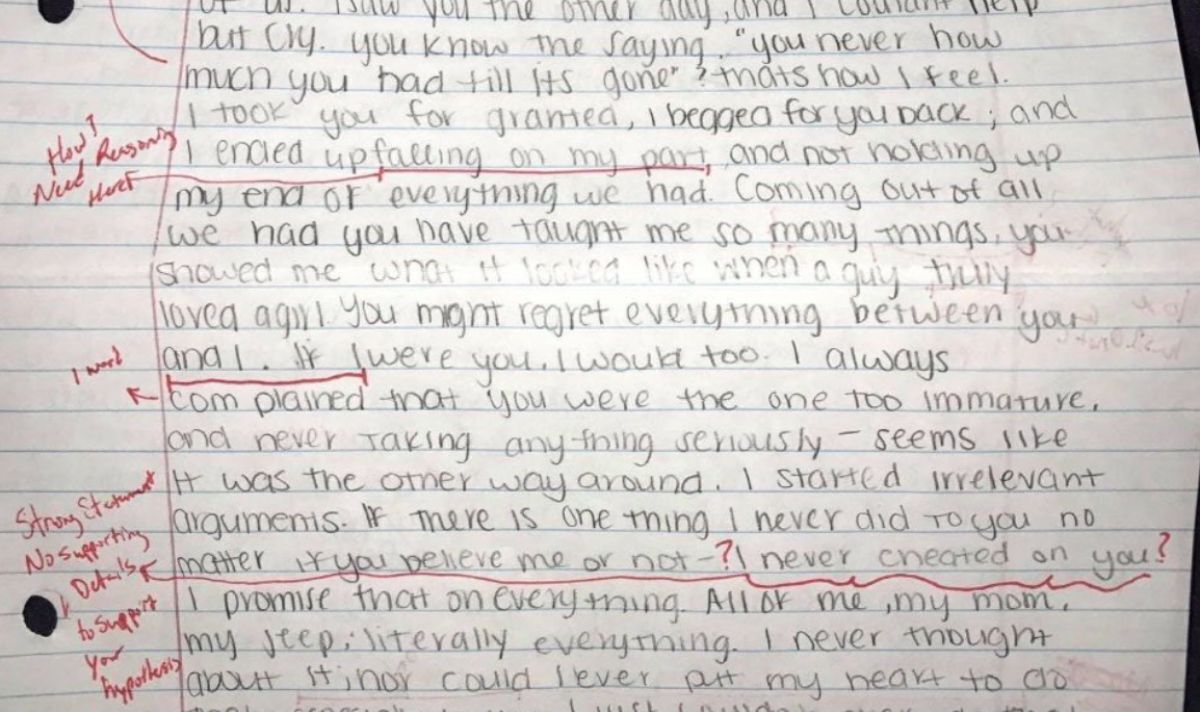 of us. I saw you the other day, and I couldnt help
but cry. you know the saying. "you never how
much you had till its gone"? thats how I feel.
I took you for granted, I begged for you back; and
How?
Need Reasoning
Here
I ended up falling on my part, and not holding up
my end of everything we had. Coming out of all
we had you have taught me so many things, you
showed me what it looked like when a guy truly
loved a girl. You might regret everything between you
and I. If I were you, I would too. I always
1 word
complained that you were the one too immature,
and never taking anything seriously - seems like
it was the other way around. I started irrelevant
Strong Statement
No supporting
Details
to support
your
hypothesis
arguments. If there is one thing I never did to you no
matter if you believe me or not -? I never cheated on you?
I promise that on everything. All of me, my mom,
my jeep; literally everything. I never thought
about it; nor could I ever put my heart to do